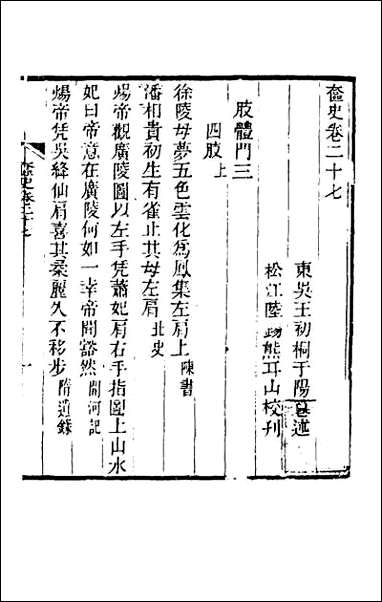 奩史卷二十七
東吳王初桐于陽述
松江陸 熊耳山校刊
肢體門三
四肢上
徐陵母夢五色雲化爲鳳集左肩上陳書
潘相貴初生有雀止其母左肩北史
煬帝觀廣陵圖以左手凭蕭妃肩右手指圖上山水
妃曰帝意在廣陵何如一幸帝聞豁然開河記
煬帝凭吳絳仙肩喜其柔麗久不移步隋遺錄
奩史卷二十七
一